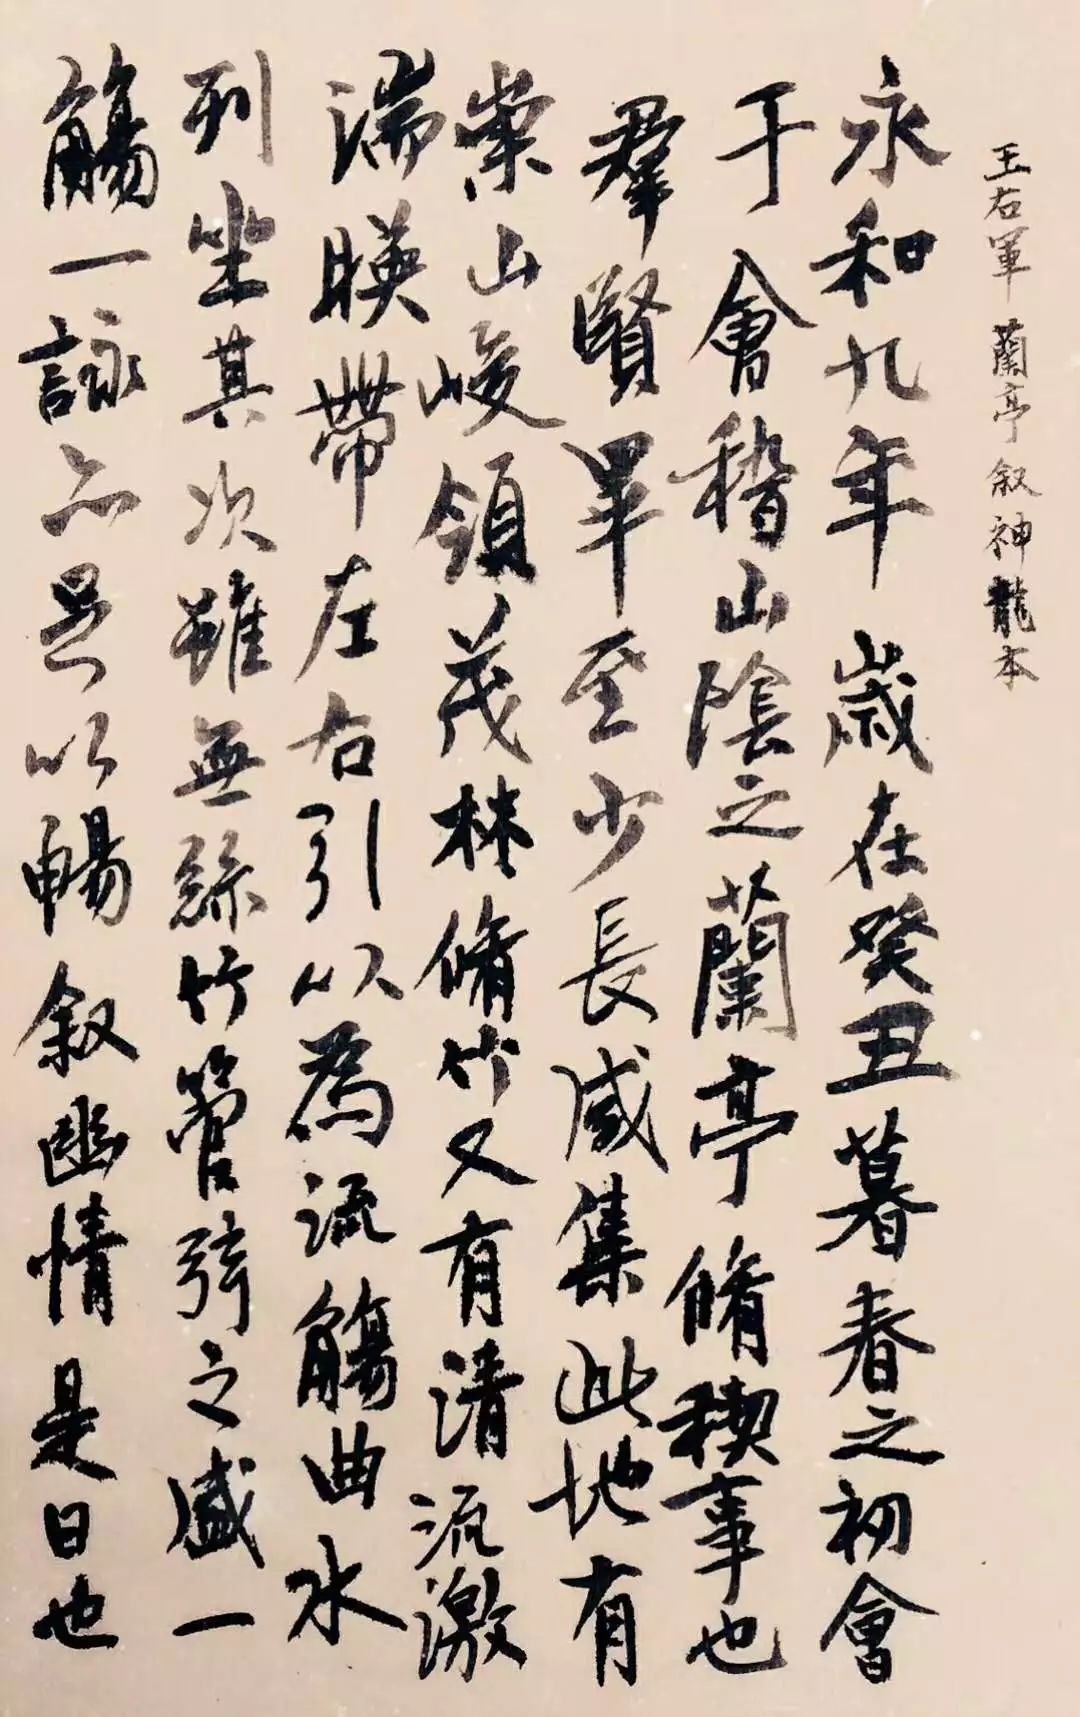 王右軍 蘭亭叙神龍本
永和九年歲在癸丑暮春之初會
于會稽山陰之蘭亭脩稧事也
羣賢畢至少長咸集此地有
崇山峻領茂林脩竹又有清流激
湍暎帶左右引以為流觴曲水
列坐其次雖無絲竹管弦之盛一
觴一詠亦足以暢叙幽情是日也